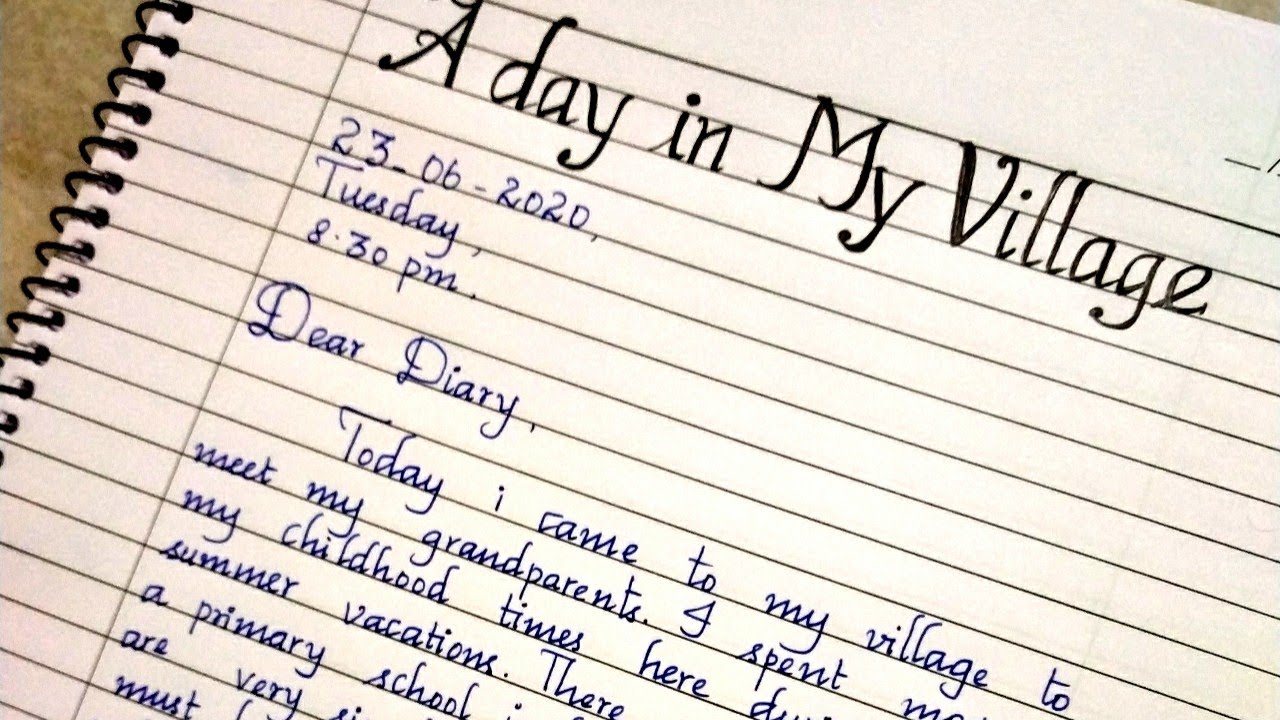 A day in My Village
23-06-2020,
Tuesday,
8.30 pm.
Dear Diary,
Today i came to my village to
meet my grandparents. I spent
my childhood times here
summer vacations. There
a primary school
are very
must